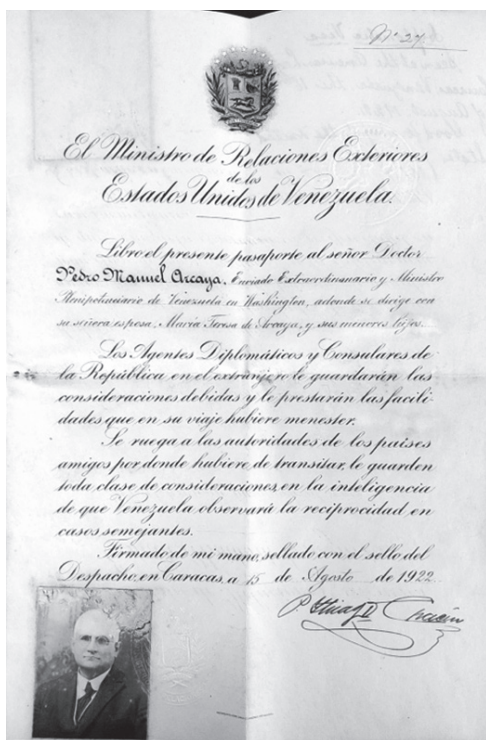 Nº 27
El Ministro de Relaciones Exteriores
de los
Estados Unidos de Venezuela.
Libro el presente pasaporte al señor Doctor
Pedro Manuel Arcaya, Enviado Extraordinario y Ministro
Plenipotenciario de Venezuela en Washington, adonde se dirige con
su señora esposa, María Teresa de Arcaya, y sus menores hijos.
Los Agentes Diplomáticos y Consulares de
la República en el extranjero le guardarán las
consideraciones debidas y le prestarán las facili
dades que en su viaje hubiere menester.
Se ruega a las autoridades de los países
amigos por donde hubiere de transitar, le guarden
toda clase de consideraciones, en la inteligencia
de que Venezuela observará la reciprocidad en
casos semejantes.
Firmado de mi mano, sellado con el sello del
Despacho, en Caracas, a 15 de Agosto de 1922
P. Itriago